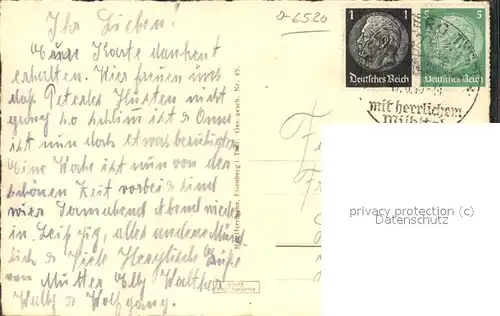 Ihr Lieben!
Eure Karte dankend
erhalten. Wir freuen uns
daß Peterles Husten nicht
ganz so schlim ist & Anna
ist nun doch etwas beruhigter.
Eine Woche ist nun von der
schönen Zeit vorbei & sind
wir Sonnabend Abend wieder
in Leipzig, alles andere Münd
lich & Viele Herzliche Grüße
von Mutter Elly Walther
Wally & Wolfgang.
D-6520
1 1
Deutsches Reich
5
Deutsches Reich
mit herrlichem
Eisenberg i. Thür. Ges. gesch. Nr. 45.
ECHTE
privacy protection (c)
Datenschutz